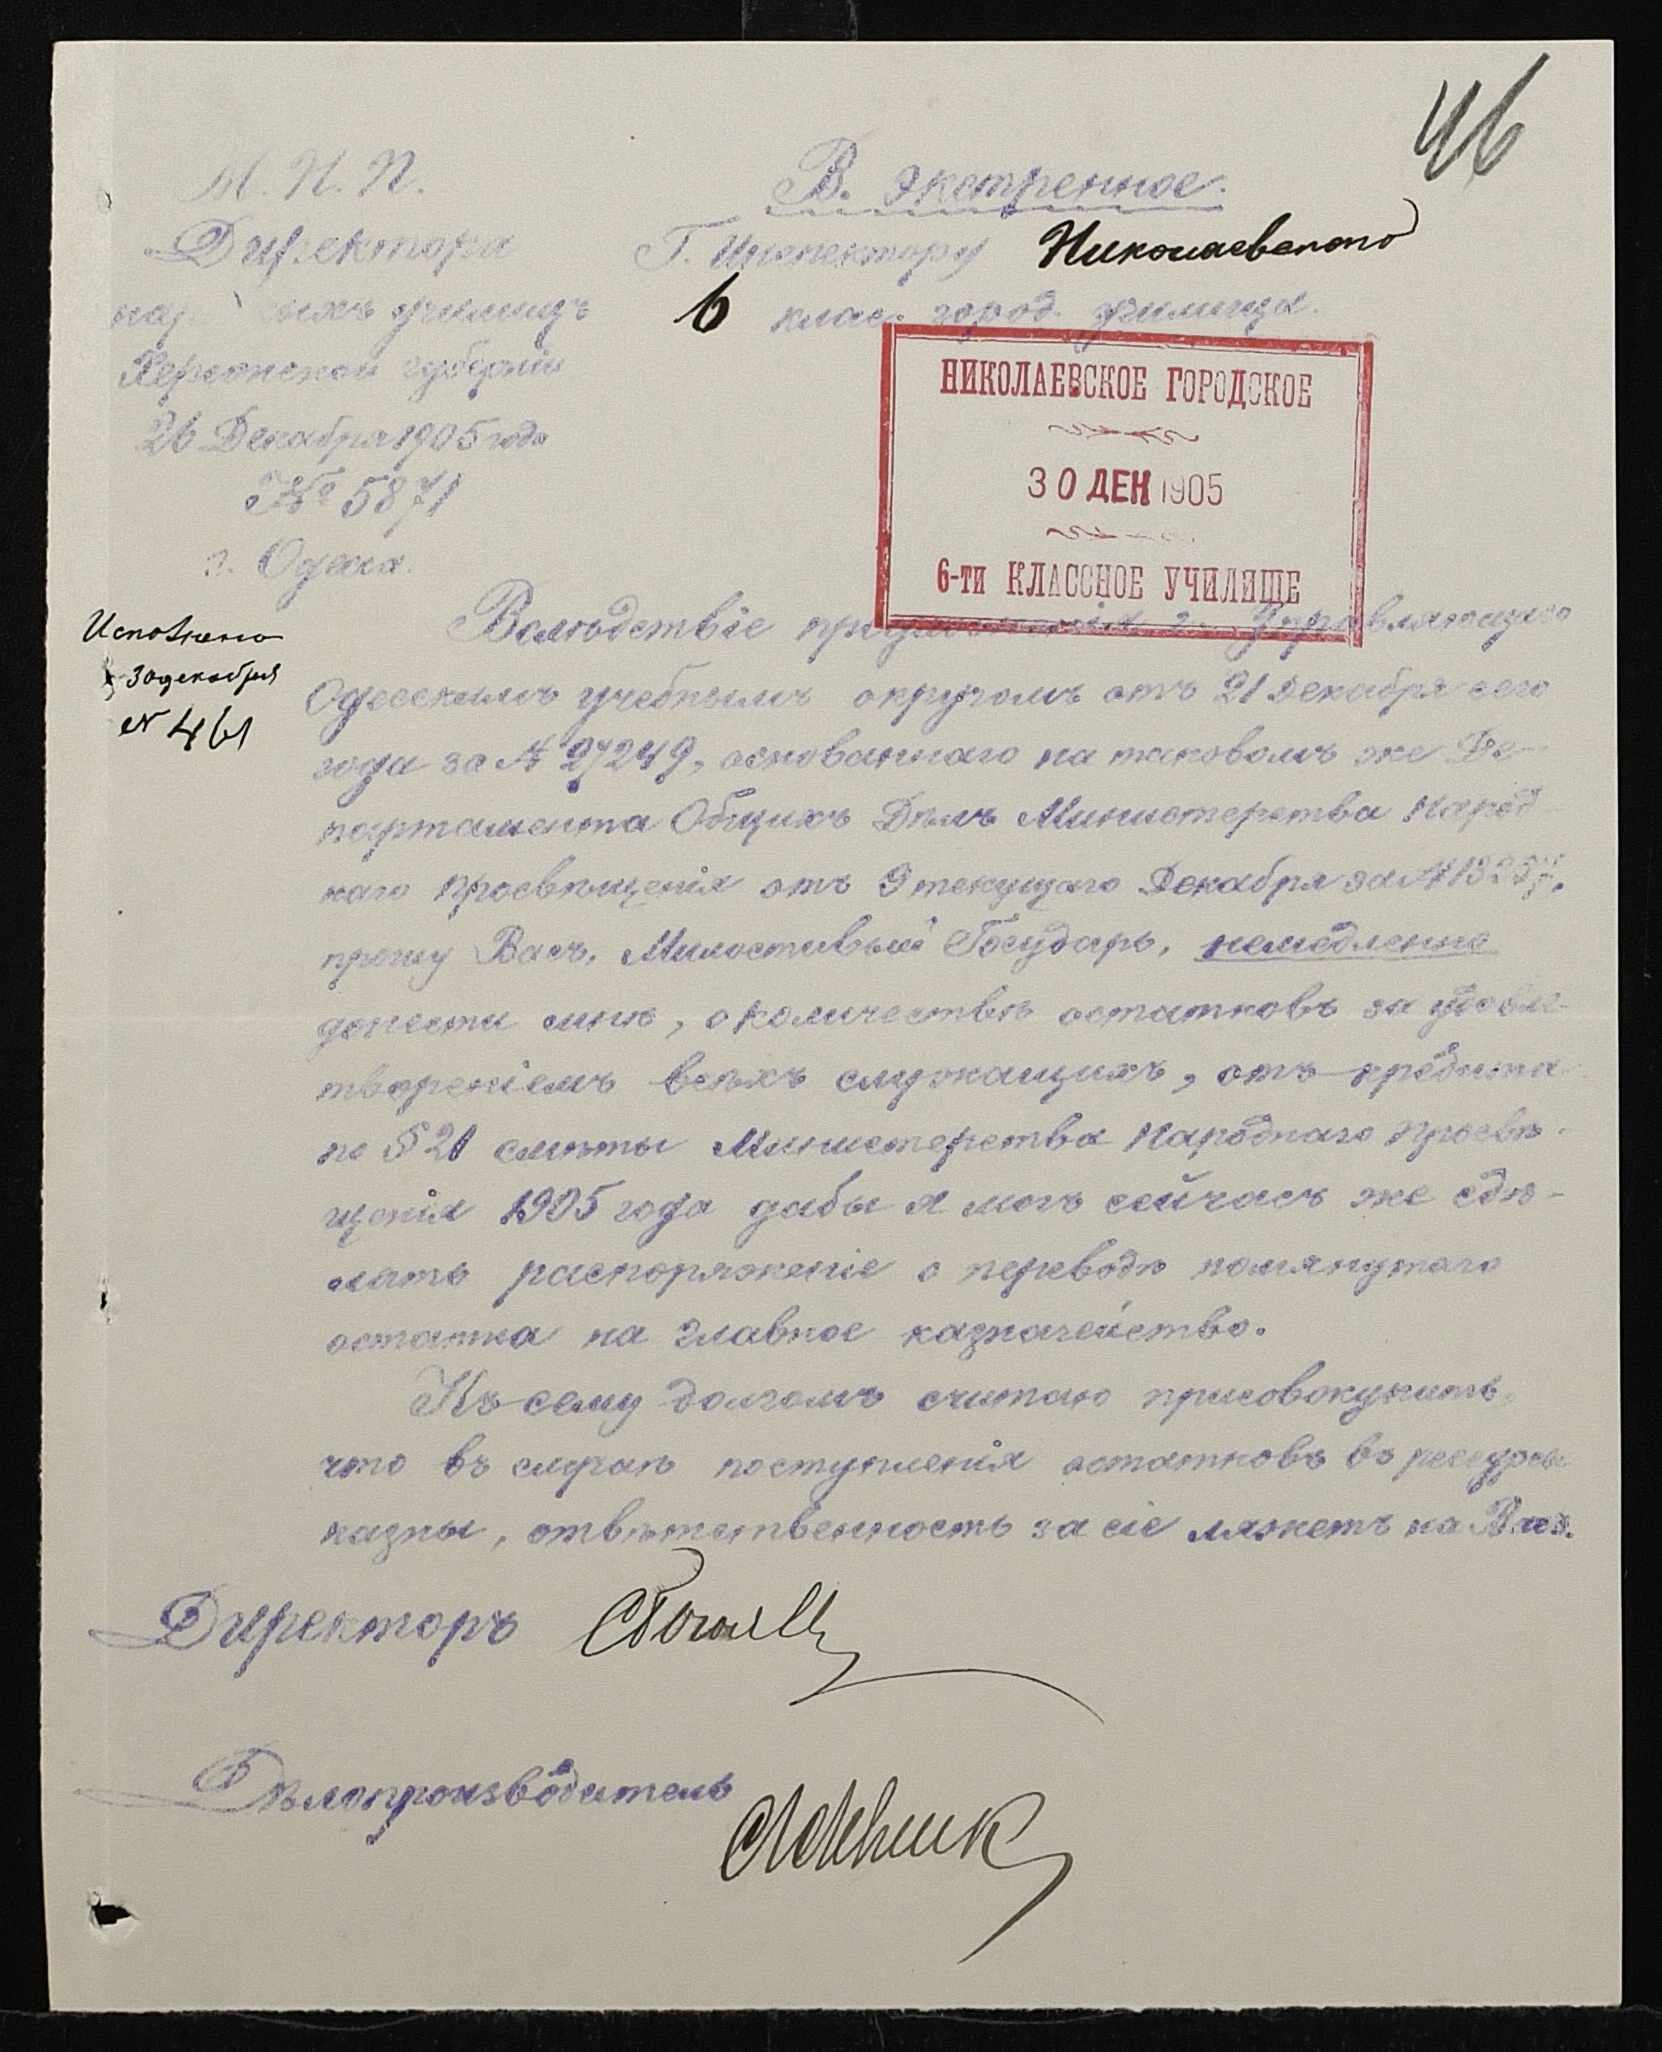 46
М. Н. П.
Директора
народныхъ училищъ
Херсонской губерніи
26 Декабря 1905 года
№ 5871
г. Одесса.
В. экстренное.
Г. Инспектору Николаевскаго
6 клас. город. училища.
НИКОЛАЕВСКОЕ ГОРОДСКОЕ
30 ДЕК 1905
6-ти КЛАССНОЕ УЧИЛИЩЕ
Исполнено
30 декабря
№ 461
Вслѣдствіе предложенія г. Управляющаго
Одесскимъ учебнымъ округомъ отъ 21 Декабря сего
года за № 27249, основаннаго на таковомъ же Де-
партамента Общихъ Дѣлъ Министерства Народ-
наго Просвѣщенія отъ 9 текущаго Декабря за №
прошу Васъ, Милостивый Государь, немедленно
донести мнѣ, о количествѣ остатковъ за удовле-
твореніемъ всѣхъ служащихъ, отъ кредита
по § 21 смѣты Министерства Народнаго Просвѣ-
щенія 1905 года дабы я могъ сейчасъ же сдѣ-
лать распоряженіе о переводѣ помянутаго
остатка на главное казначейство.
Къ сему долгомъ считаю присовокупить,
что въ случаѣ поступленія остатковъ въ ресурсы
казны, отвѣтственность за сіе ляжетъ на Васъ.
Директоръ
Дѣлопроизводитель